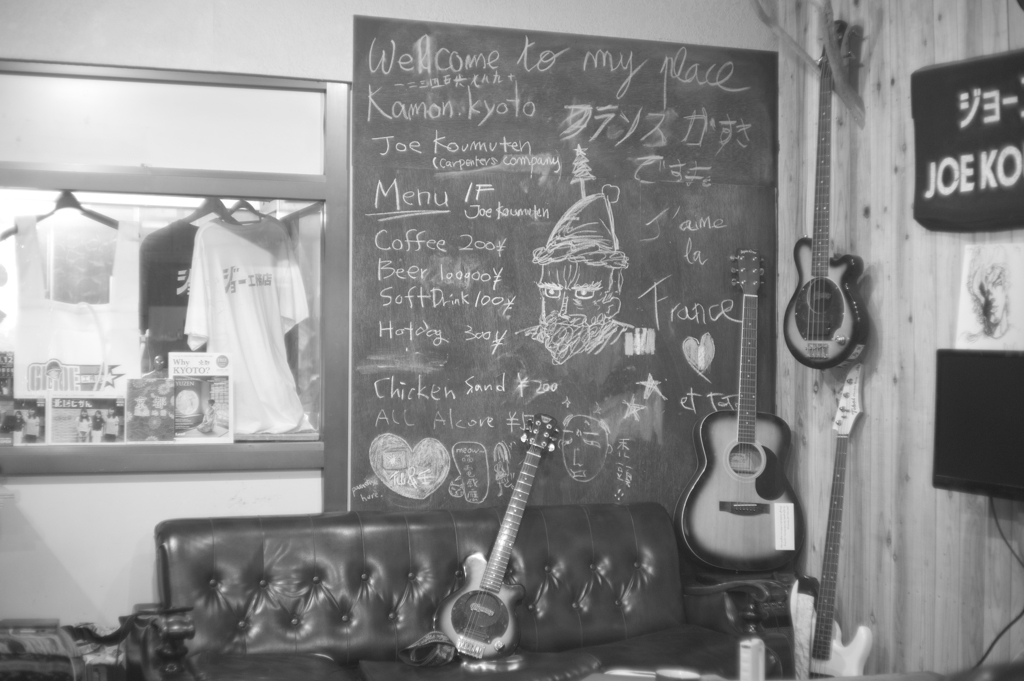 Wellcome to my place
Kamon.kyoto
フランスが すき
です
Joe Koumuten
(carpenters company)
Menu 1F
Joe Koumuten
Coffee 200¥
Beer 100000¥
Soft Drink 100¥
Hotdog 300¥
Chicken Sand ¥200
ALL Alcore
J'aime
la
France
et toi
meow
here.
ジョー工務店
Why
KYOTO?
ジョー
JOE KO